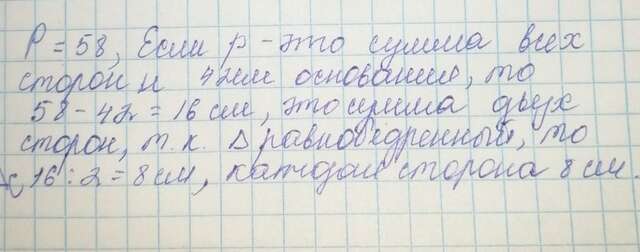 P = 58, Если p - это сумма всех
сторон и 42см основание, то
58 - 42 = 16 см, это сумма двух
сторон, т.к. Δ равнобедренный, то
16 : 2 = 8 см, каждая сторона 8 см.